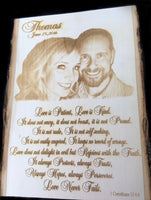 Thomas
June 19, 2016
Love is Patient, Love is Kind.
It does not envy, it does not boast, it is not Proud.
It is not rude, It is not self seeking,
It is not easily angered, It keeps no record of wrongs,
Love does not delight in evil but Rejoices with the Truth.
It always Protects, always Trusts,
Always Hopes, always Perseveres.
Love Never Fails.
1 Corinthians 13:4-8